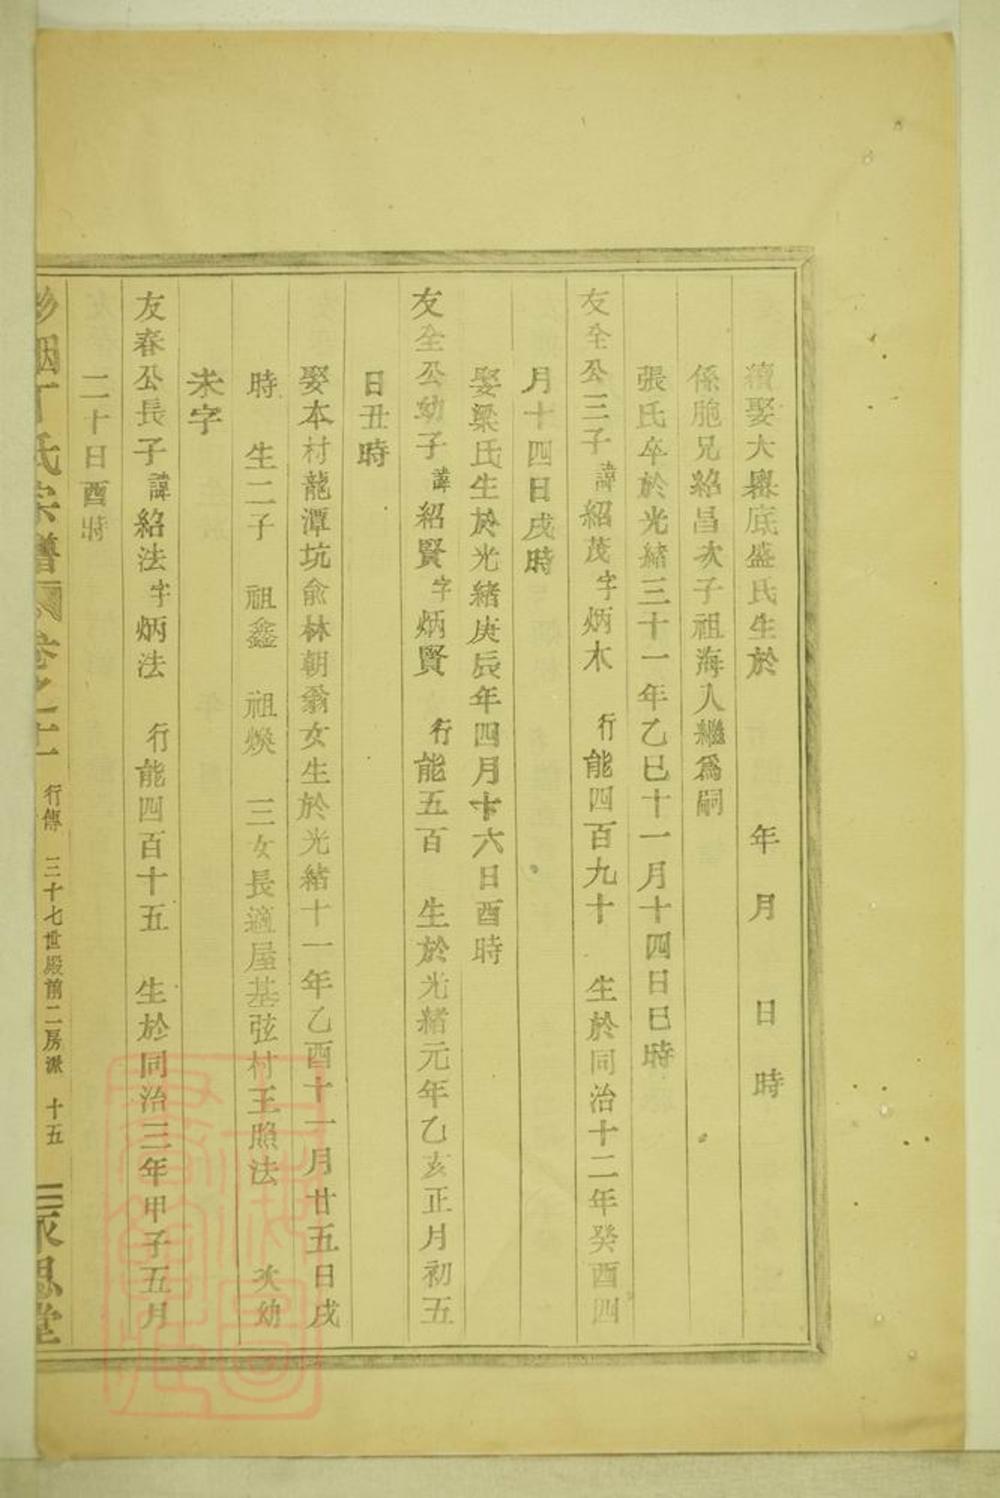 續娶大㠗底盛氏生於 年 月 日 時
係胞兄紹昌次子祖海入繼爲嗣
張氏卒於光緒三十一年乙巳十一月十四日巳時
友全公三子諱紹茂字炳木 行能四百九十 生於同治十二年癸酉四
月十四日戌時
娶梁氏生於光緒庚辰年四月十六日酉時
友全公幼子諱紹賢字炳賢 行能五百 生於光緒元年乙亥正月初五
日丑時
娶本村龍潭坑俞林朝翁女生於光緒十一年乙酉十一月廿五日戌
時 生二子 祖鑫 祖煥 三女長適屋基弦村王照法 次幼
未字
友春公長子諱紹法字炳法 行能四百十五 生於同治三年甲子五月
二十日酉時
丁氏宗譜 卷之十一 行傳 三十七世殿前二房派 十五 永思堂